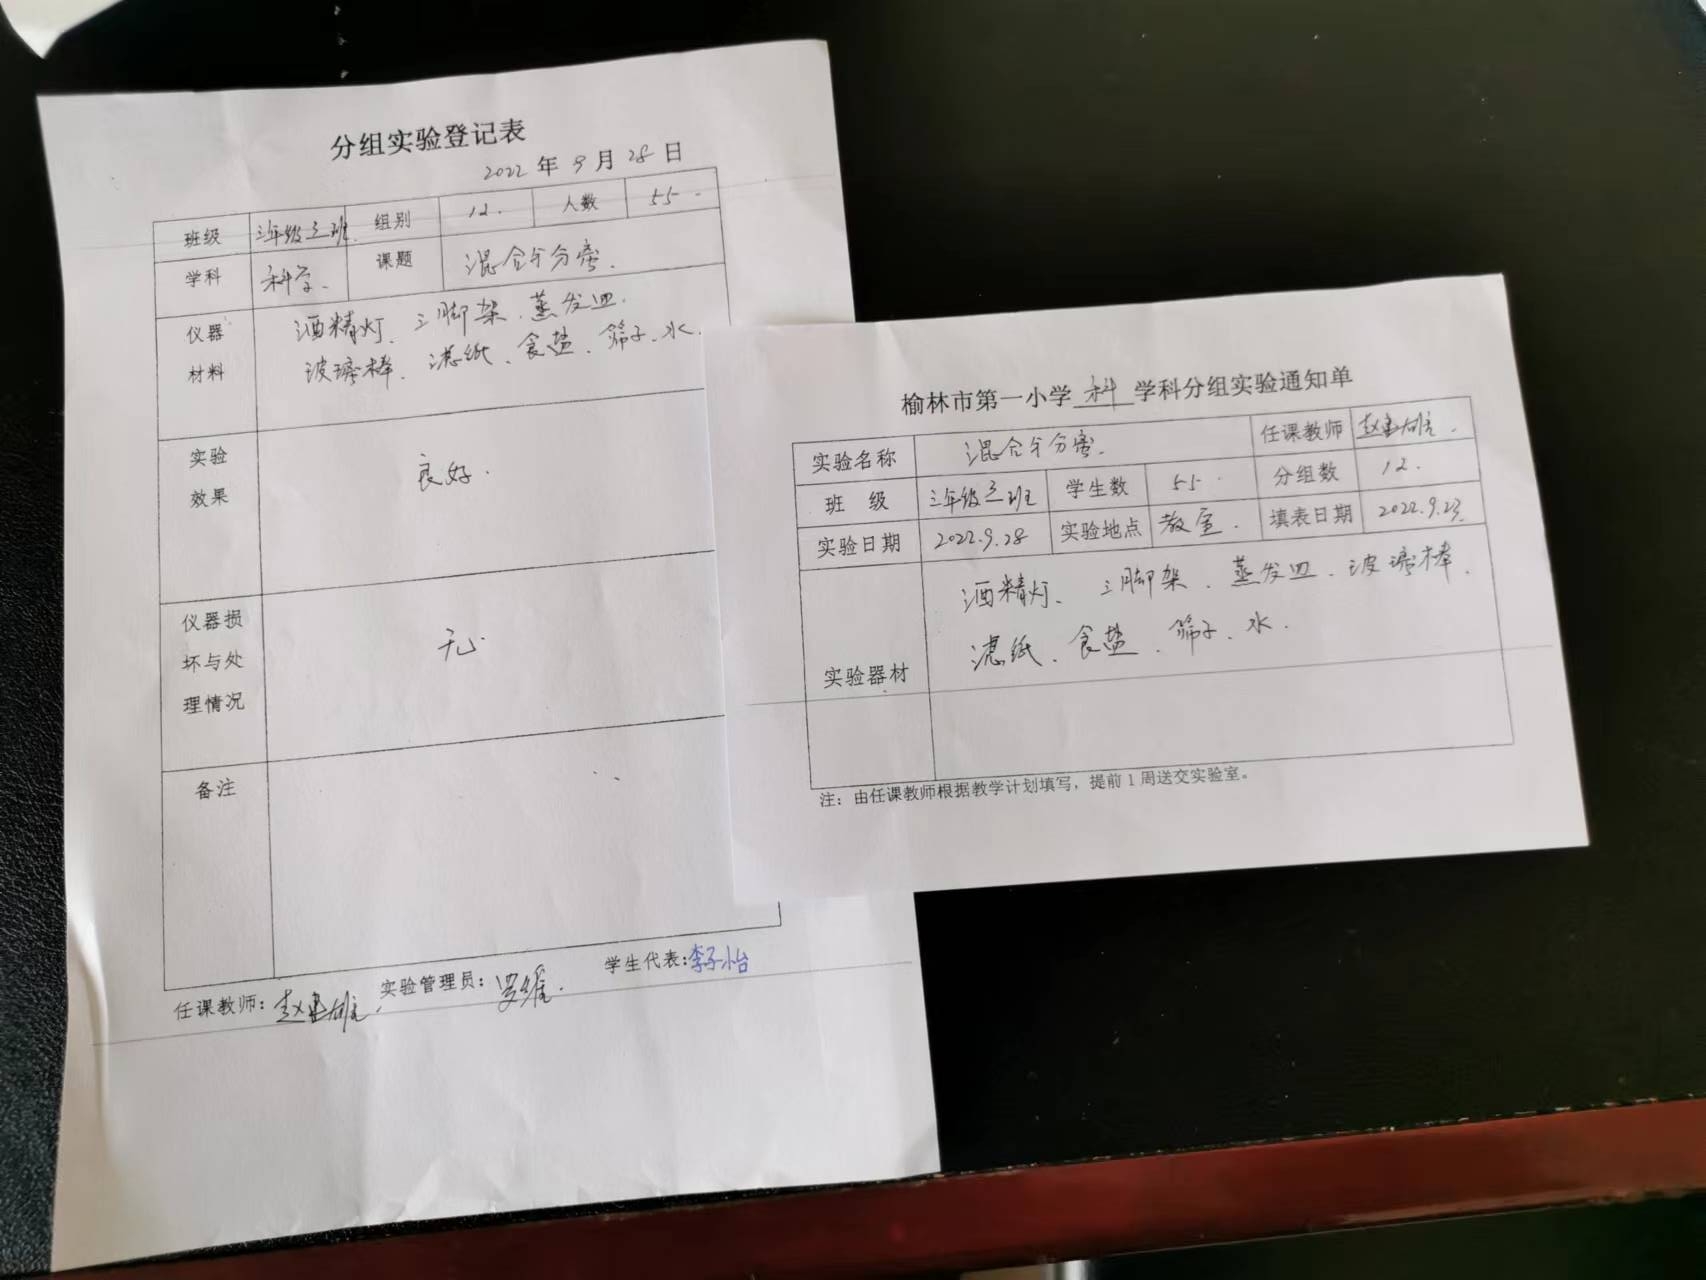 分组实验登记表
2022 年 9 月 28 日
班级 三年级三班 组别 12. 人数 55.
学科 科学. 课题 混合与分离.
仪器材料 酒精灯、三脚架、蒸发皿、
玻璃棒、滤纸、食盐、筛子、水.
实验效果 良好.
仪器损坏与处理情况 无.
备注
任课教师: 实验管理员: 罗维. 学生代表:李子怡
榆林市第一小学 科 学科分组实验通知单
实验名称 混合与分离. 任课教师
班 级 三年级三班 学生数 55. 分组数 12.
实验日期 2022.9.28 实验地点 教室. 填表日期 2022.9.23.
实验器材 酒精灯、三脚架、蒸发皿、玻璃棒、
滤纸、食盐、筛子、水.
注：由任课教师根据教学计划填写，提前1周送交实验室。